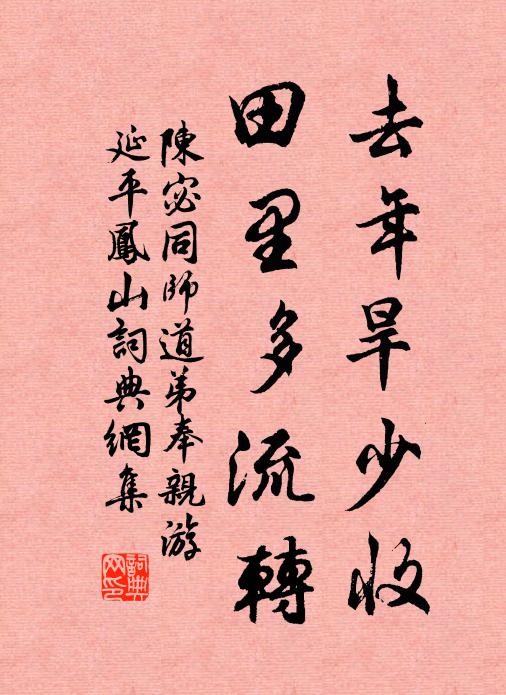 去年旱少收
田里多流轉
陳宓同師道弟奉親游
延平鳳山詞典網集
詞典网印